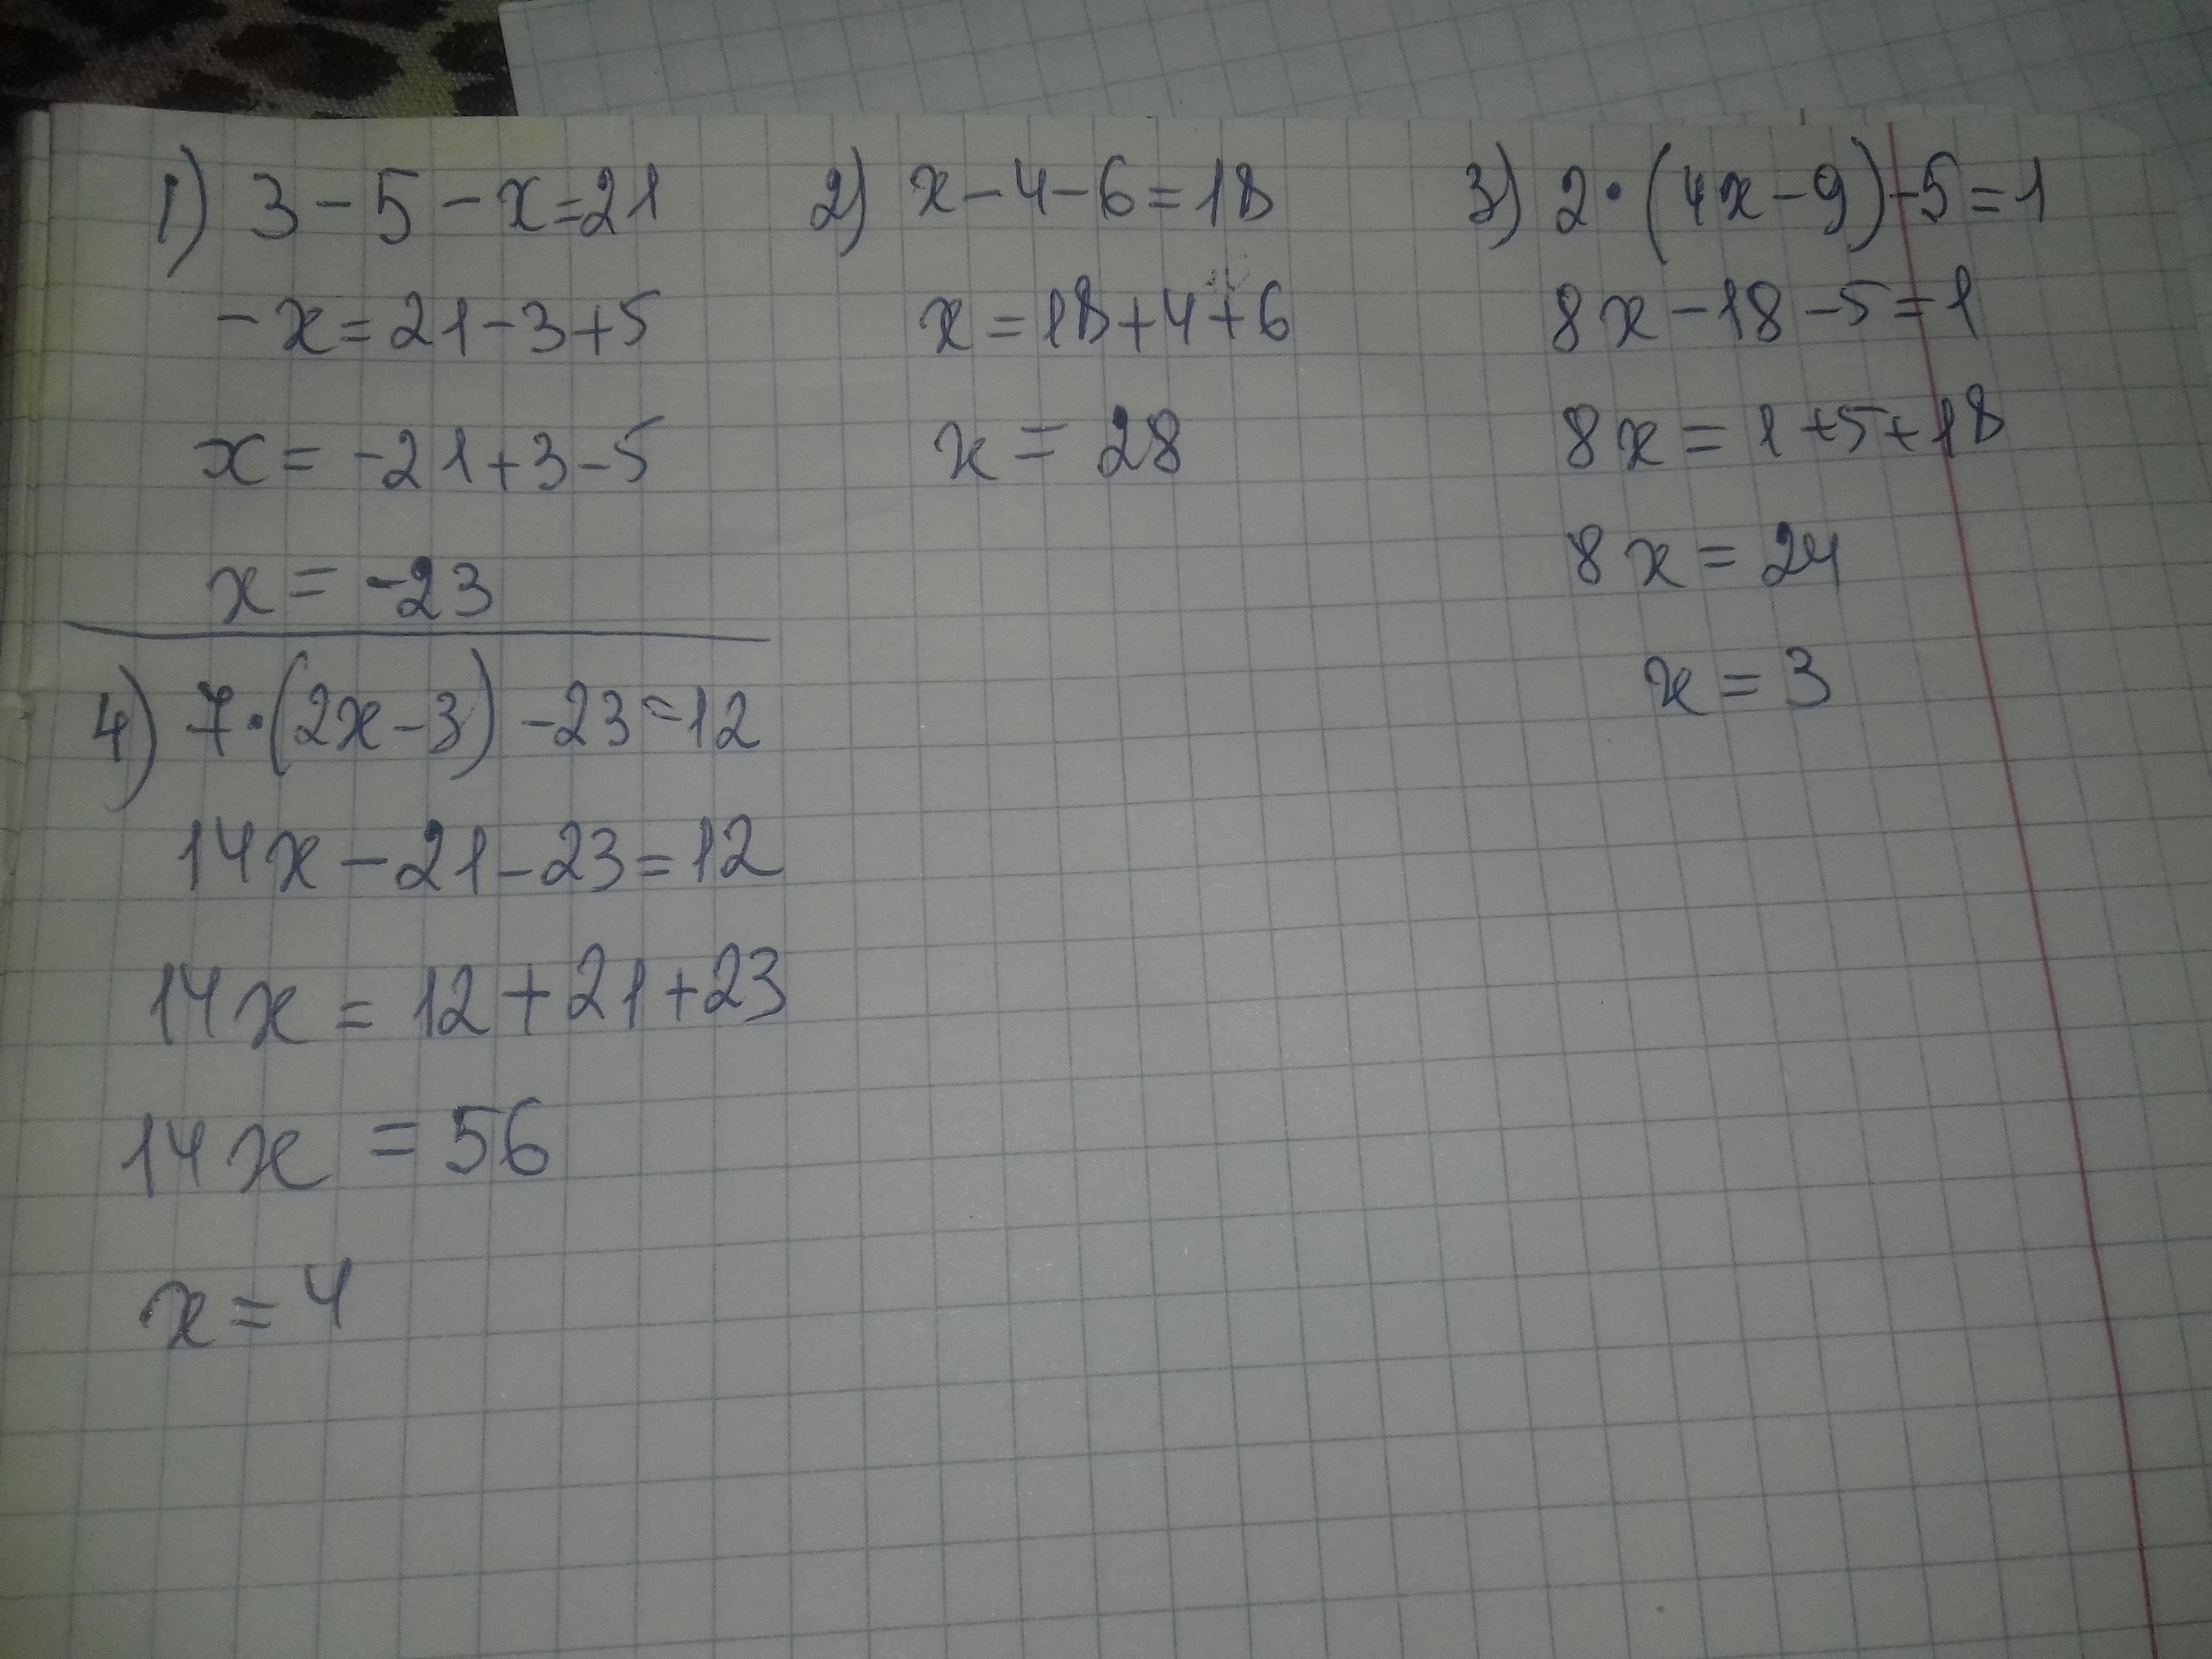 1) 3-5-x=21
-x=21-3+5
x=-21+3-5
x=-23
2) x-4-6=18
x=18+4+6
x=28
3) 2·(4x-9)-5=1
8x-18-5=1
8x=1+5+18
8x=24
x=3
4) 7·(2x-3)-23=12
14x-21-23=12
14x=12+21+23
14x=56
x=4